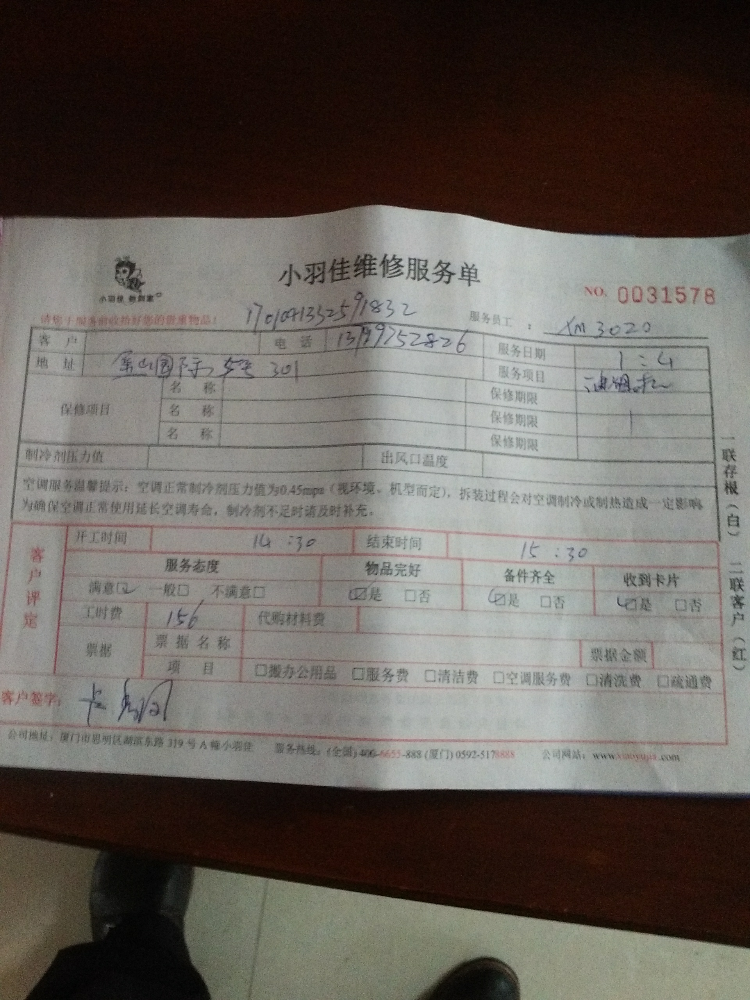 小羽佳维修服务单
小羽佳 NO. 0031578
请您于服务前收拾好您的贵重物品! 服务员工 : XM 3020
客 户 电 话 服务日期 1:4
地 址 5号 301 服务项目 油烟机
保修项目 名 称 保修期限
名 称 保修期限
名 称 保修期限
制冷剂压力值 出风口温度
空调服务温馨提示:空调正常制冷剂压力值为0.45mpa(视环境、机型而定),拆装过程会对空调制冷或制热造成一定影响
为确保空调正常使用延长空调寿命,制冷剂不足时请及时补充。
客户评定
开工时间 14:30 结束时间 15:30
服务态度 物品完好 备件齐全 收到卡片
满意☑ 一般□ 不满意□ ☑是 □否 ☑是 □否 ☑是 □否
工时费 156 代购材料费
票据 票据名称 票据金额
项 目 □搬办公用品 □服务费 □清洁费 □空调服务费 □清洗费 □疏通费
客户签字:
公司地址:厦门市思明区湖滨东路 319 号 A 幢小羽佳 服务热线:(全国) 400-6655-888 (厦门) 0592-5178888 公司网站:www.xiaoyujia.com
一联存根(白) 二联客户(红)